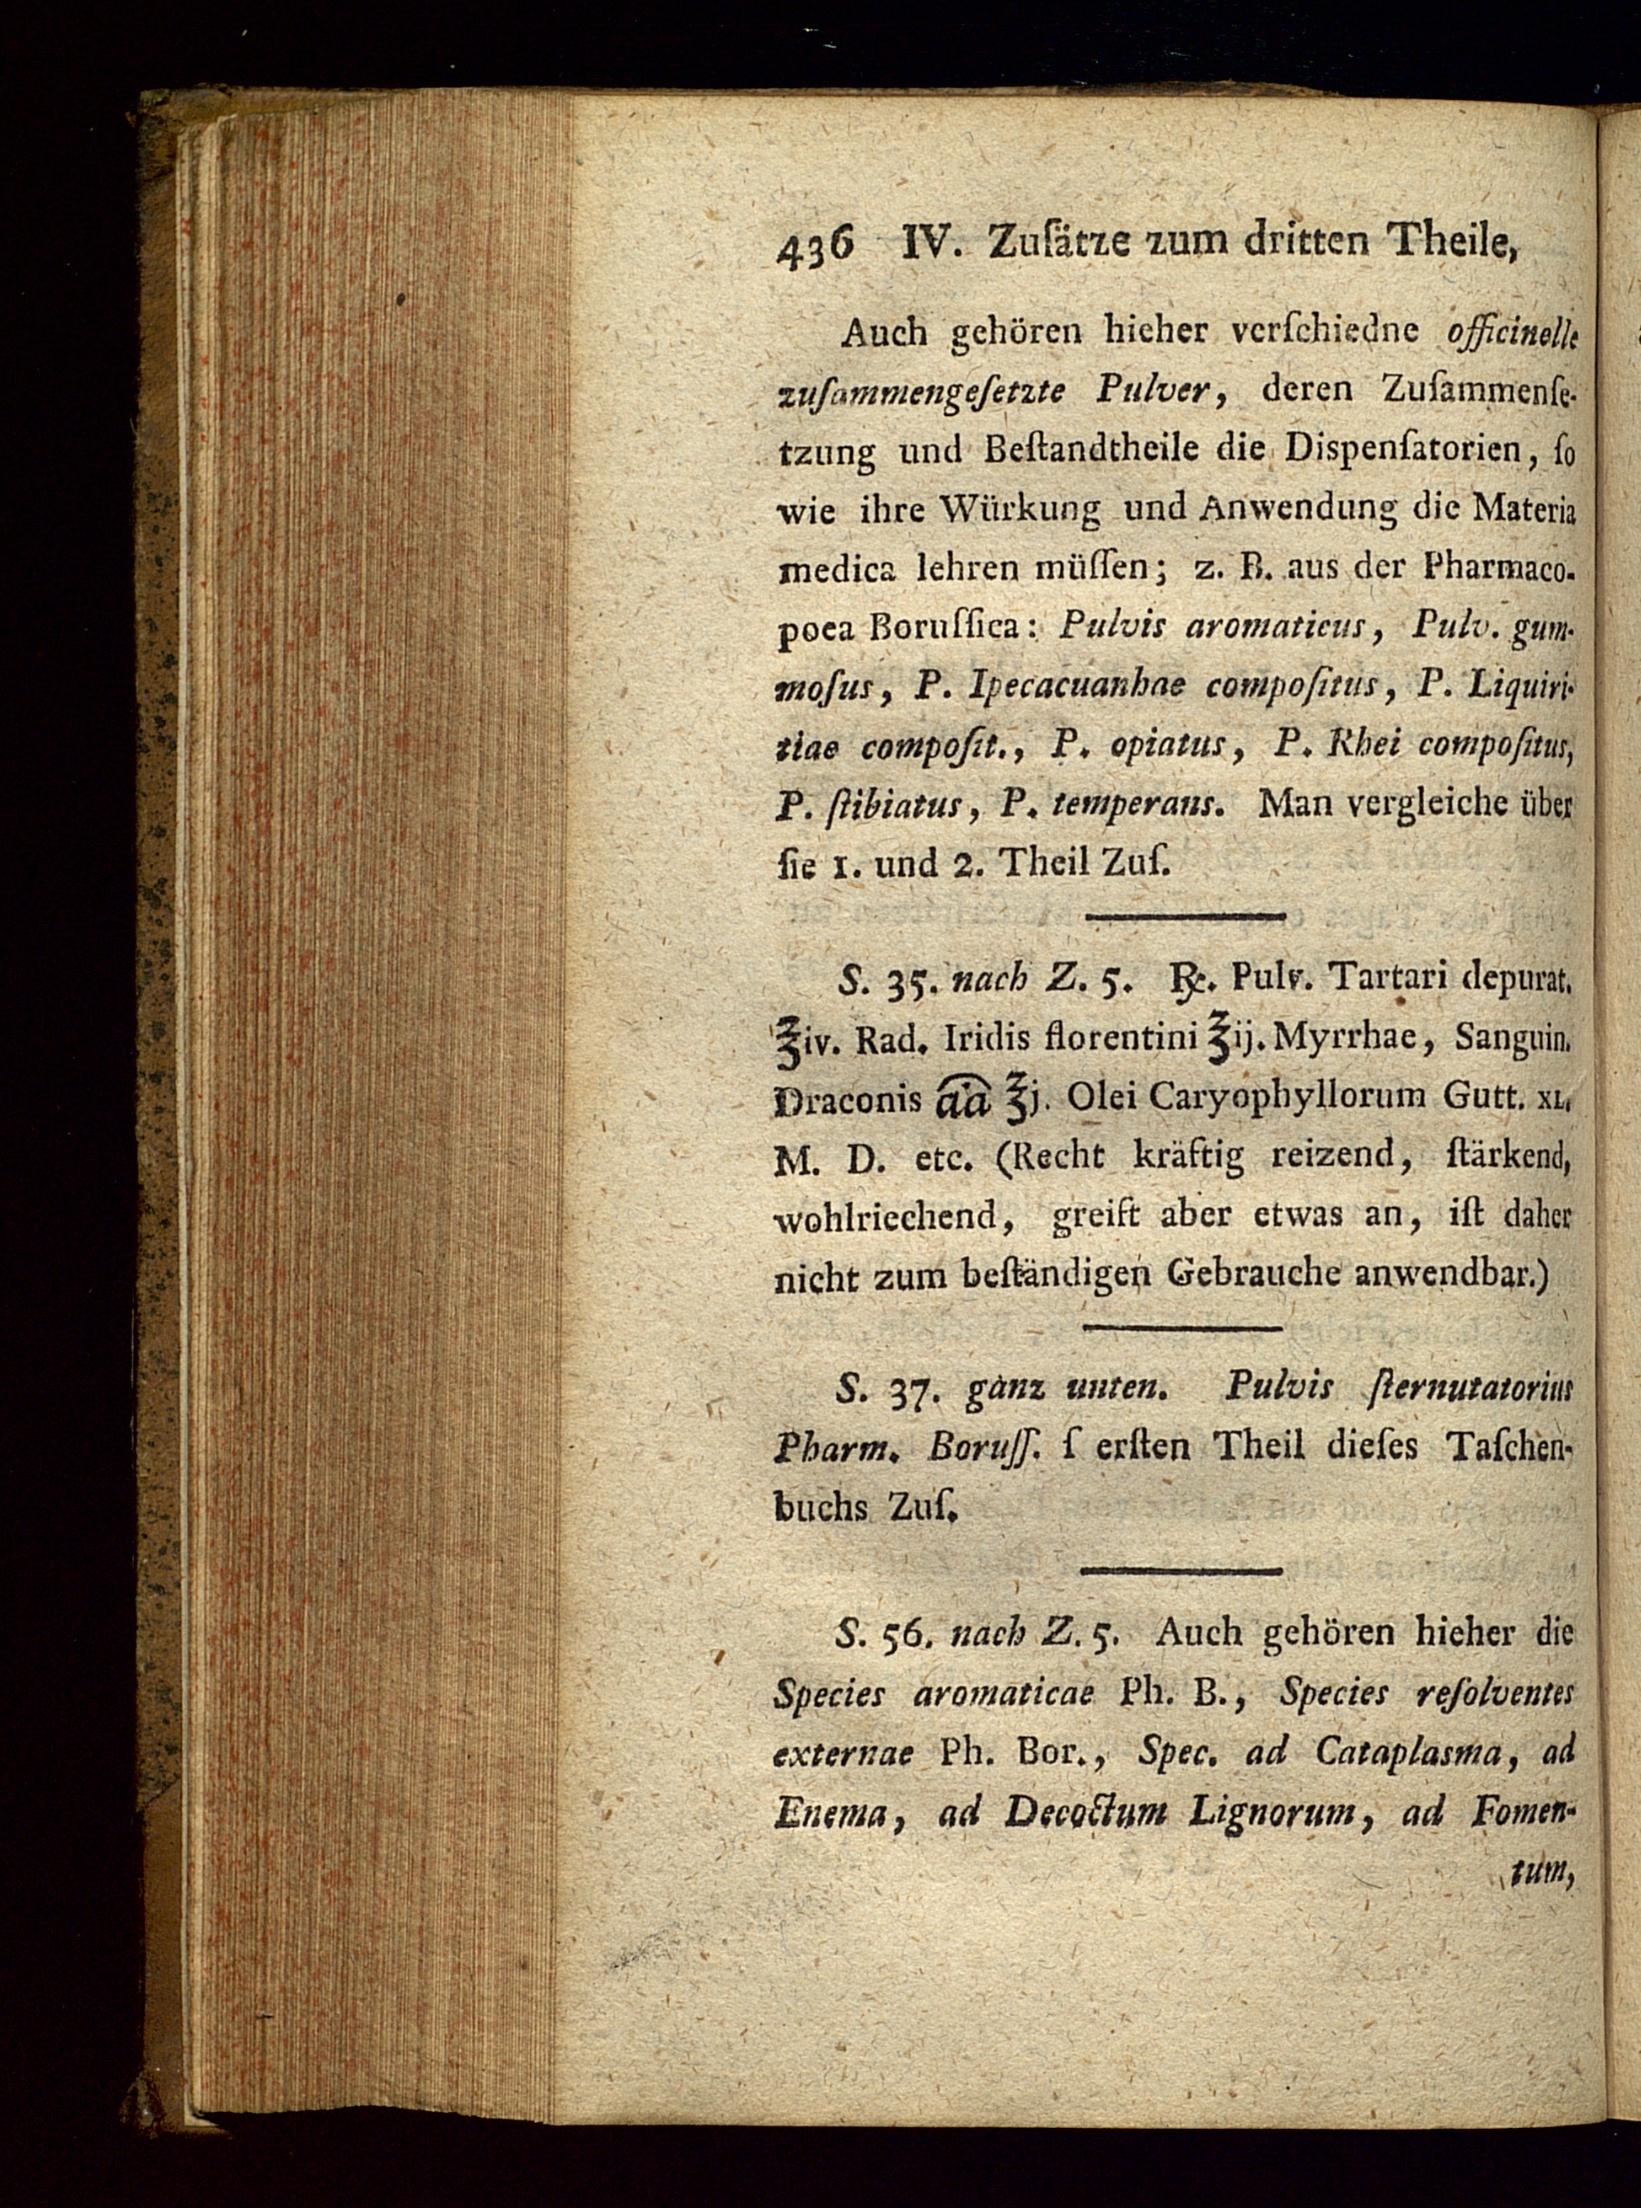 436 IV. Zuſätze zum dritten Theile,
Auch gehören hieher verſchiedne officinelle
zuſammengeſetzte Pulver, deren Zuſammenſe-
tzung und Beſtandtheile die Dispenſatorien, ſo
wie ihre Würkung und Anwendung die Materia
medica lehren müſſen; z. B. aus der Pharmaco-
poea Boruſſica: Pulvis aromaticus, Pulv. gum-
moſus, P. Ipecacuanhae compoſitus, P. Liquiri-
tiae compoſit., P. opiatus, P. Rhei compoſitus,
P. ſtibiatus, P. temperans. Man vergleiche über
ſie 1. und 2. Theil Zuſ.
S. 35. nach Z. 5. ℞. Pulv. Tartari depurat.
℥iv. Rad. Iridis florentini ℥ij. Myrrhae, Sanguin.
Draconis āā ℥j. Olei Caryophyllorum Gutt. XL.
M. D. etc. (Recht kräftig reizend, ſtärkend,
wohlriechend, greift aber etwas an, iſt daher
nicht zum beſtändigen Gebrauche anwendbar.)
S. 37. ganz unten. Pulvis ſternutatorius
Pharm. Boruſſ. ſ erſten Theil dieſes Taſchen-
buchs Zuſ.
S. 56. nach Z. 5. Auch gehören hieher die
Species aromaticae Ph. B., Species reſolventes
externae Ph. Bor., Spec. ad Cataplasma, ad
Enema, ad Decoctum Lignorum, ad Fomen-
tum,